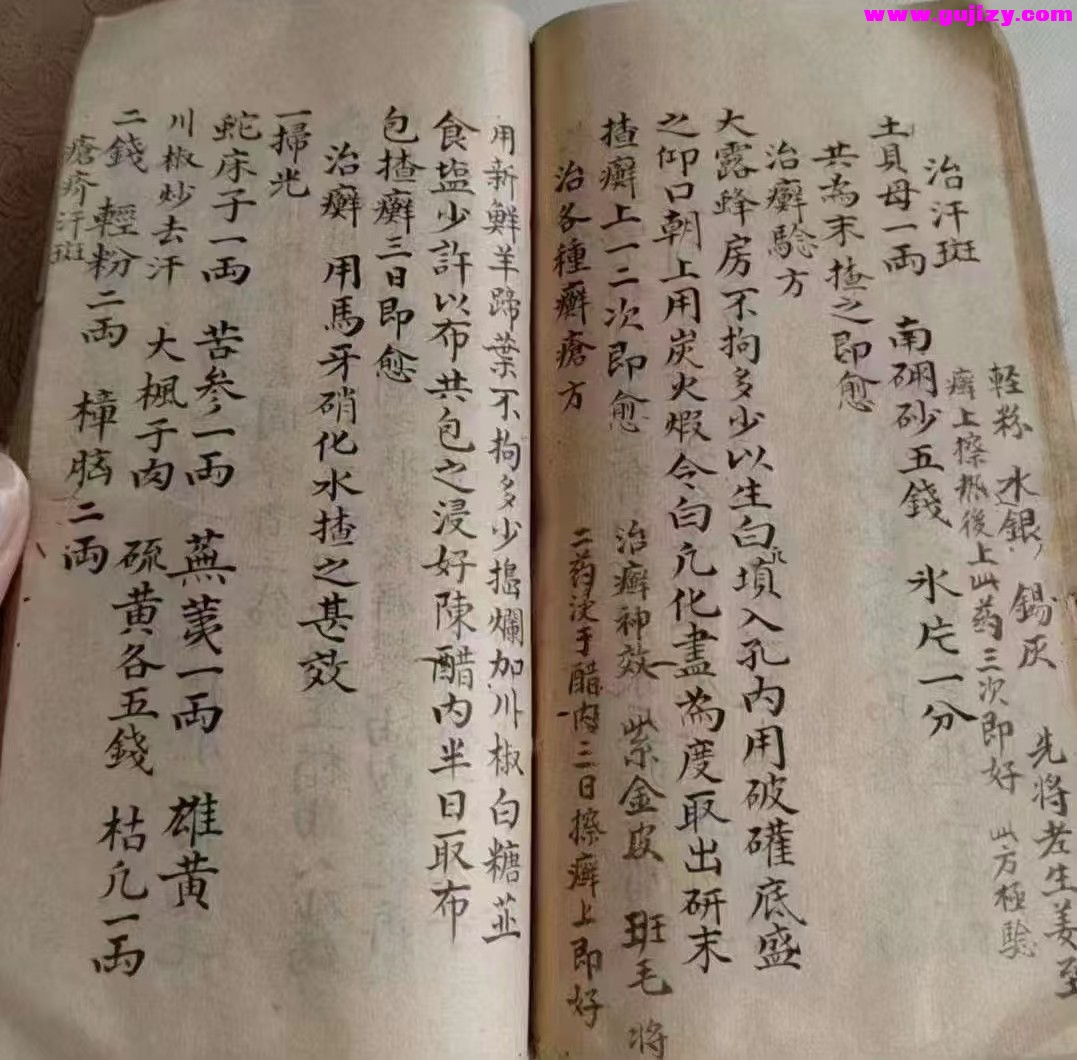 www.gujizy.com
治汗斑
輕粉 水銀 錫灰 先将老生姜至
癣上擦热後上此药三次即好 此方極驗
土貝母一両 南硼砂五錢 氷片一分
共為末揸之即愈
治癬驗方
大露蜂房不拘多少以生白凡填入孔内用破礶底盛
之仰口朝上用炭火煆令白凢化盡為度取出研末
揸癬上一二次即愈 治癬神效 紫金皮 班毛 将
治各種癬瘡方 二药浸于醋内三日擦癬上即好
用新鮮羊蹄葉不拘多少搗爛加川椒白糖並
食塩少許以布共包之浸好陳醋内半日取布
包揸癬三日即愈
治癬 用馬牙硝化水揸之甚效
一掃光
蛇床子一両 苦參一両 蕪荑一両 雄黄
川椒炒去汗 大楓子肉 硫黄各五錢 枯凢一両
二錢 輕粉二両 樟脳二両
瘡疥汗斑